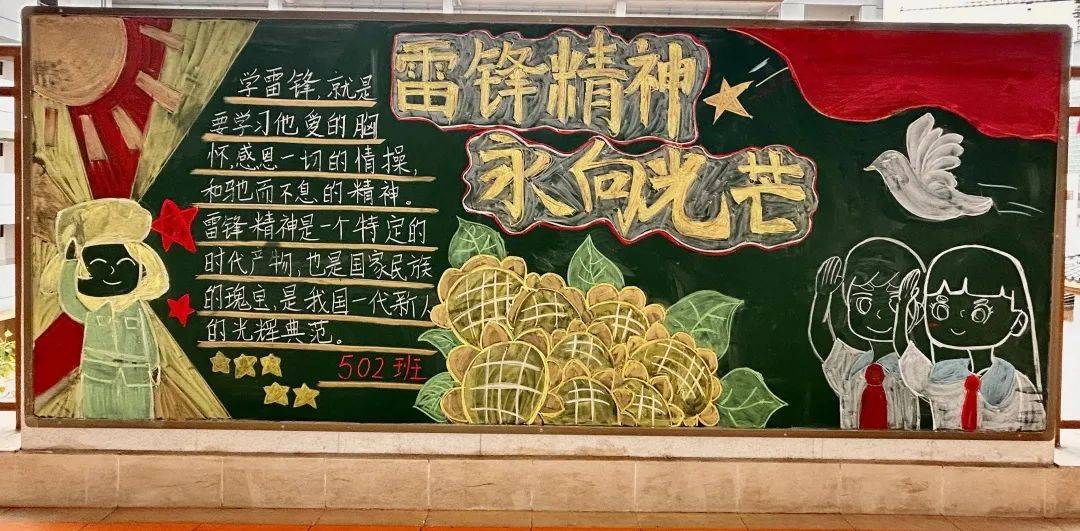 雷锋精神
永向光芒
学雷锋,就是
要学习他爱的胸
怀,感恩一切的情操,
和驰而不息的精神。
雷锋精神是一个特定的
时代产物,也是国家民族
的瑰宝,是我国一代新人
的光辉典范。
502班